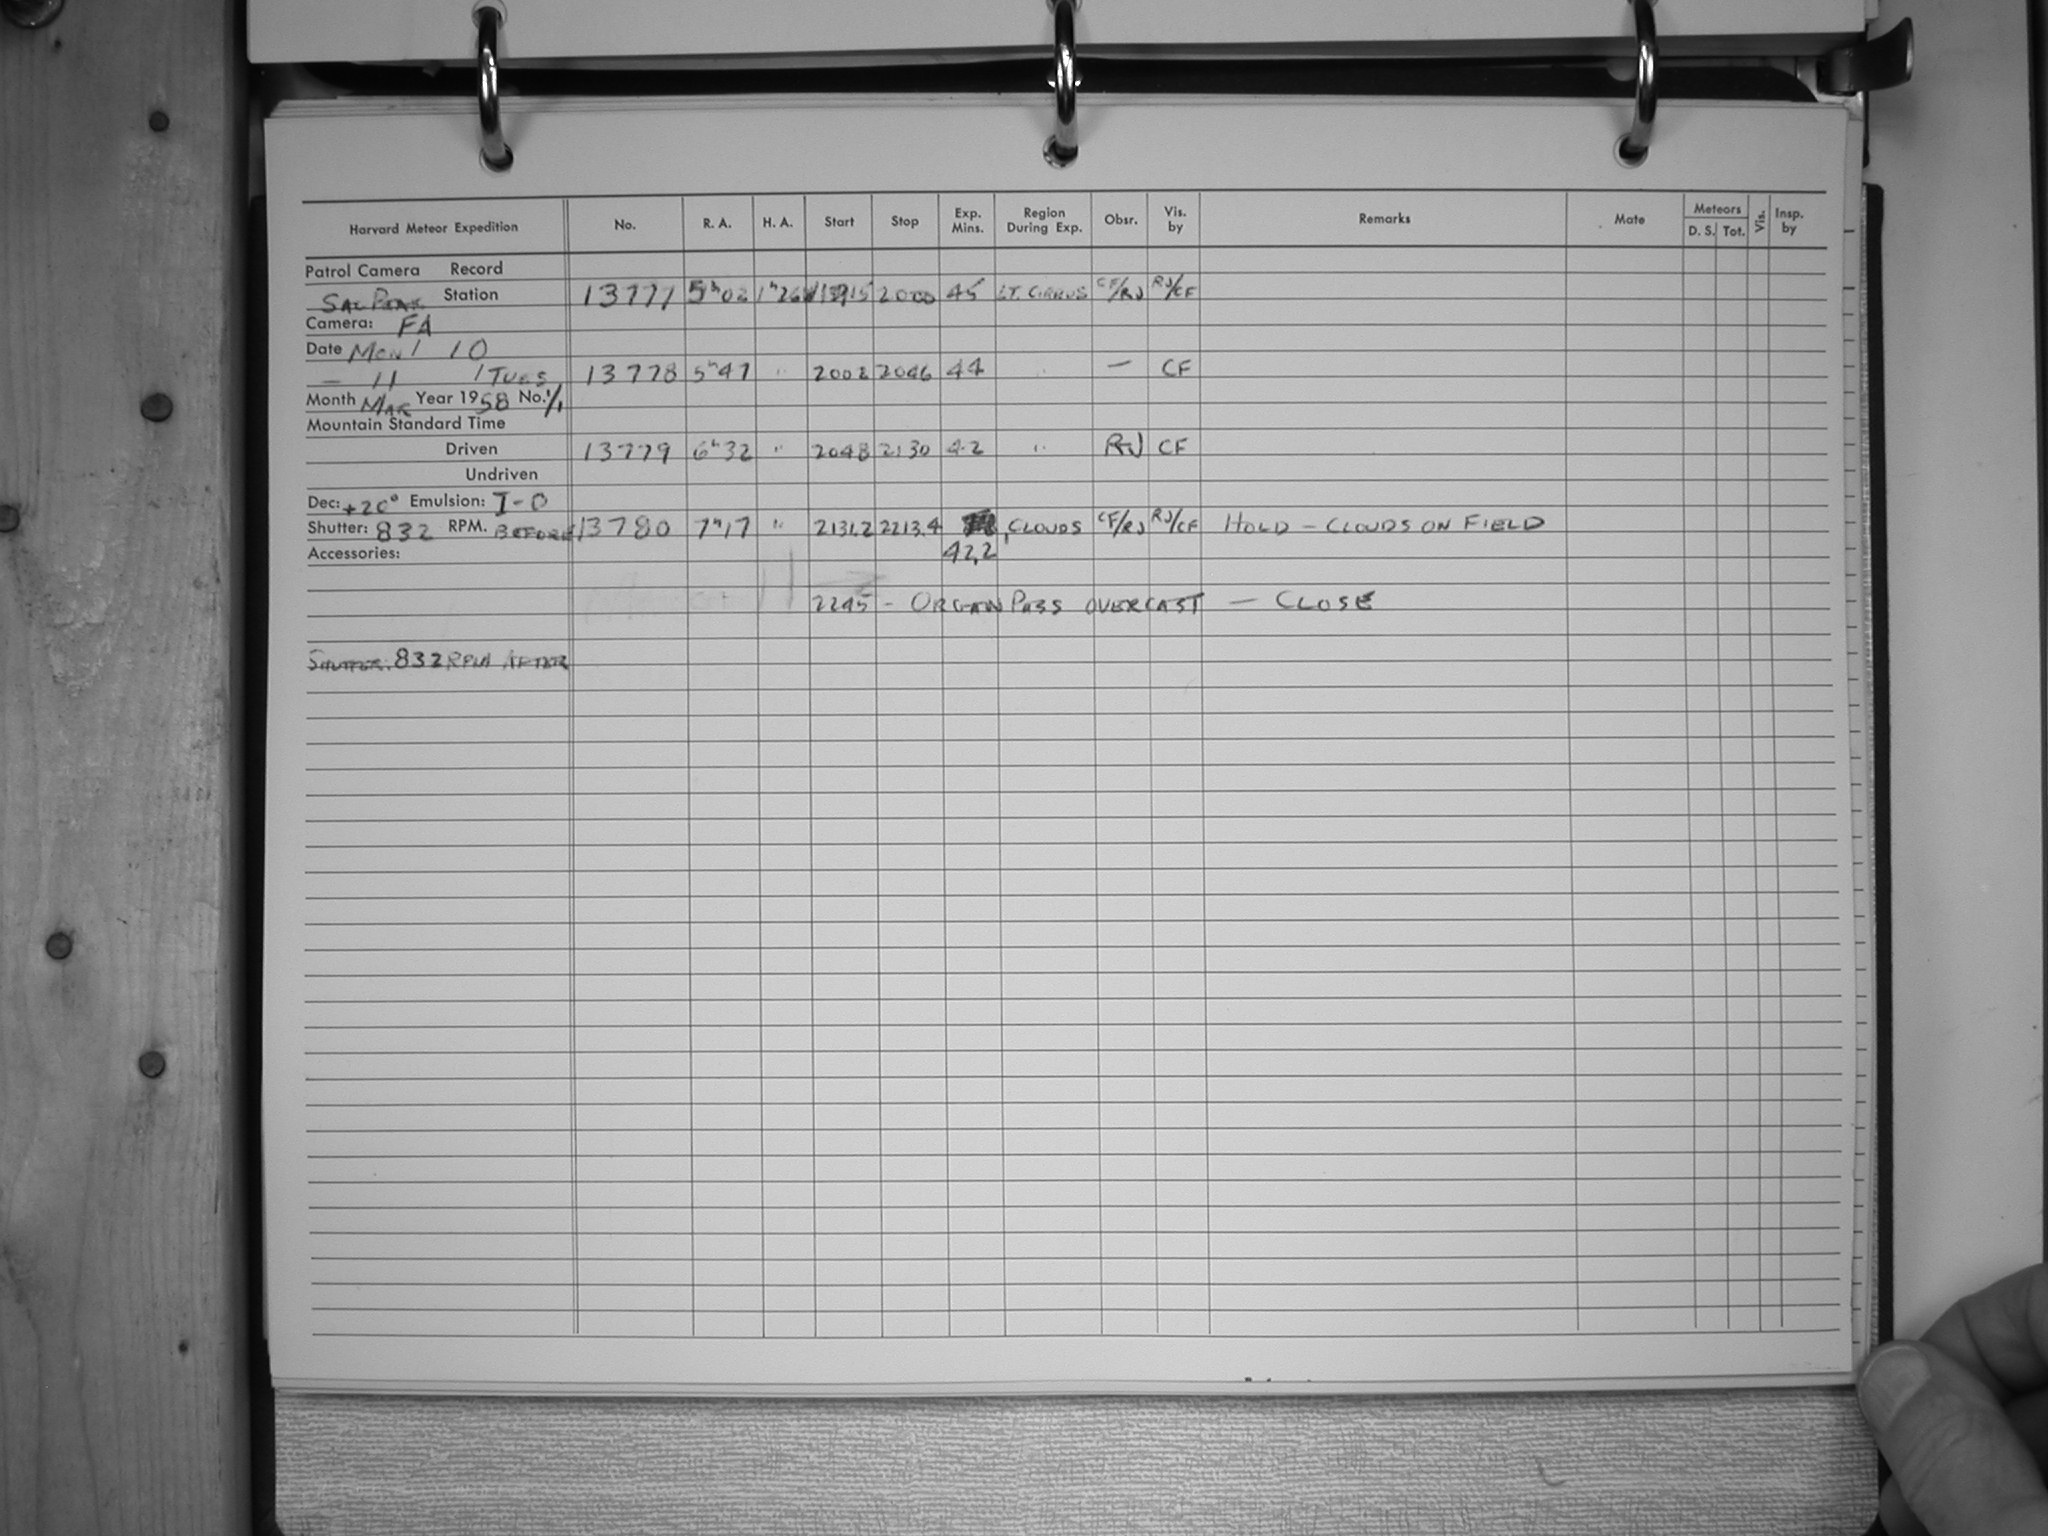 Harvard Meteor Expedition No. R. A. H. A. Start Stop Exp. Mins. Region During Exp. Obsr. Vis. by Remarks Mate Meteors D. S. Tot. Vis. Insp. by
Patrol Camera Record
SAC PEAK Station 13777 5ʰ02 1ʰ26W 1915 2000 45 LT. CIRRUS CF/RJ RJ/CF
Camera: FA
Date MON/ 10
— 11 /TUES 13778 5ʰ47 " 2002 2046 44 " — CF
Month MAR Year 1958 No. 1/1
Mountain Standard Time
Driven 13779 6ʰ32 " 2048 2130 42 " RJ CF
Undriven
Dec: +20° Emulsion: I-O
Shutter: 832 RPM. BEFORE 13780 7ʰ17 " 2131.2 2213.4 CLOUDS CF/RJ RJ/CF HOLD - CLOUDS ON FIELD
Accessories: 42.2
2245 - ORGAN PASS OVERCAST — CLOSE
SHUTTER. 832 RPM AFTER